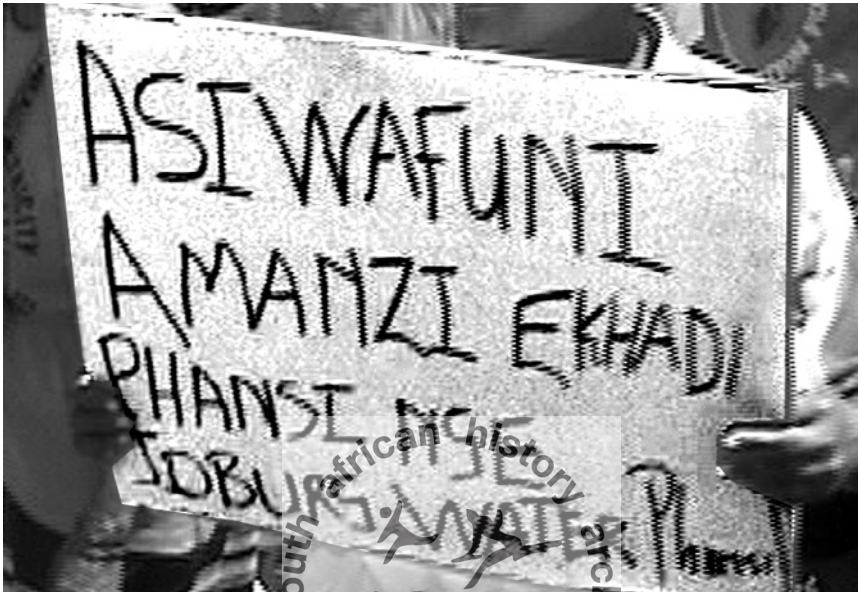 ASIWAFUNI
AMANZI EKHADI
PHANSI NGE
JOBURG WATER Phansi
south african history arc